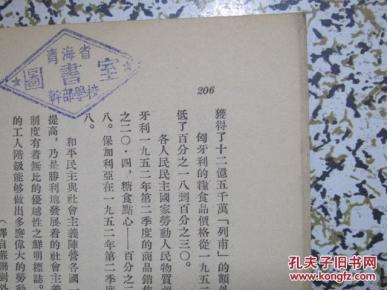 青海省
圖書室
幹部學校
206
獲得了十二億五千萬「列甫」的額外
匈牙利的糧食品價格從一九五二
低了百分之一八到百分之三〇。
各人民民主國家勞動人民物質
牙利一九五二年第二季度的商品銷售
之二〇·四，糖食點心——百分之二
八。保加利亞在一九五二年第二季度
八。
和平民主與社會主義陣營各國
提高，乃是勝利地發展着的社會主義
制度有者無比的優越性之鮮明標誌。
的工人階級能够做出多麽偉大的勞動
孔夫子旧书网